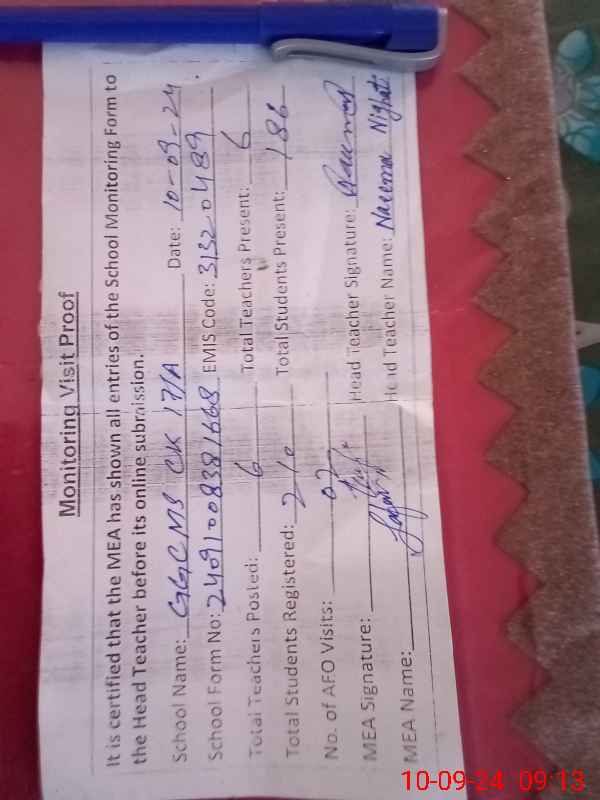 Monitoring Visit Proof
It is certified that the MEA has shown all entries of the School Monitoring Form to
the Head Teacher before its online submission.
School Name: GGCMS CK 17/A Date: 10-09-24
School Form No: 24091008381668 EMIS Code: 31320489
Total Teachers Posted: 6 Total Teachers Present: 6
Total Students Registered: 210 Total Students Present: 186
No. of AFO Visits: 02
MEA Signature: Head Teacher Signature:
MEA Name: Head Teacher Name: Naeema Nighat
10-09-24 09:13